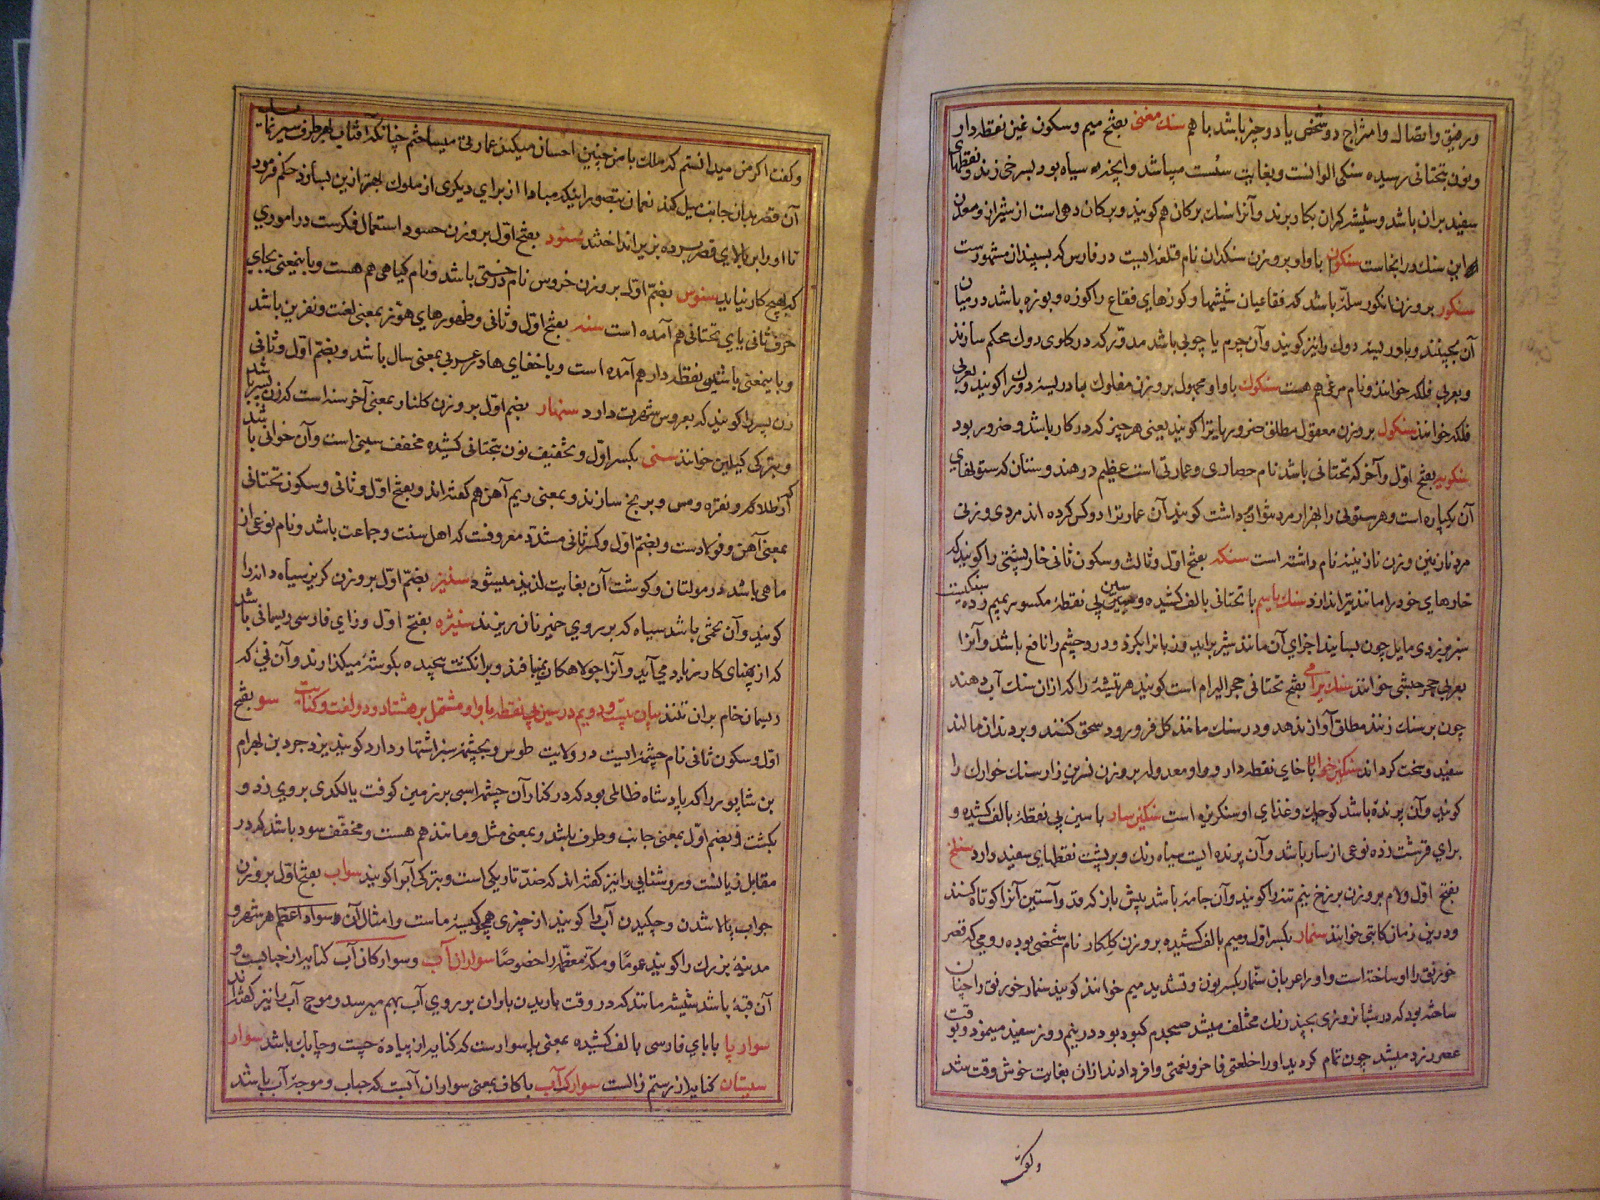 و رفیق و اتصال و امتزاج دو شخص یا دو چیز باشد با هم سنك مغنی بفتح میم و سکون غین نقطه دار و
و نون بتحتانی رسیده سنکی الوانست و بغایت سست میباشد و آنچه سیاه بود بسرخی زند و نقطهای
سفید بران باشد و شیشه کران بکار برند و آنرا سنك برکان هم کویند و برکان دهی است از شیراز و معدن
این سنك در انجاست سنکوان با واو بر وزن سنکدان نام قلعه ایست در فارس که بسپیدان مشهورست
سنکور بر وزن انکور سله باشد که فقاعیان شیشها و کوزهای فقاع را کوزه و بوزه باشد در میان
آن بچینند و بادریسه دوك را نیز کویند و آن چرم یا چوبی باشد مدور که در کلوی دوك محکم سازند
و بعربی فلکه خوانند و نام مرغی هم هست سنکوك با واو مجهول بر وزن مفلوك بادریسه دوك را کویند و بعربی
فلکه خوانند سنکول بر وزن معقول مطلق ضروریاترا کویند یعنی هر چیز که در کار باشد و ضرور بود
سنکویه بفتح اول و آخر که تحتانی باشد نام حصاری و عمارتی است عظیم در هندوستان که ستونهای
آن یکپاره است و هر ستونی را بهزار مرد نتوان برداشت کویند آن عمارترا دو کس کرده اند مردی و زنی
مرد نازنین و زن نازنینه نام داشته است سنکه بفتح اول و ثالث و سکون ثانی خارپشتی را کویند که
خارهای خود را مانند تیر اندازد سنك یاسیم با تحتانی بالف کشیده و سین بی نقطهٔ مکسور بمیم زده سنکیست
سبز بزردی مایل چون بسایند اجزای آن مانند شیر براید و زبانرا بکزد و درد چشم را نافع باشد و آنرا
بعربی حجر حبشی خوانند سنك یرامی بفتح تحتانی حجر الیرام است کویند هر تیشهٔ را که ازان سنك آب دهند
چون بر سنك زنند مطلق آواز ندهد و در سنك مانند کل فرو رود سحق کنند و بر دندان مالند
سفید و سخت کرداند سنکین خوار با خای نقطه دار و واو معدوله بر وزن نسرین زار سنك خوارك را
کویند و آن پرنده باشد کوچك و غذای او سنکریزه است سنکین سار با سین بی نقطهٔ بالف کشیده و
برای قرشت زده نوعی از سار باشد و آن پرنده ایست سیاه رنك و بر پشت نقطهای سفید دارد سنلخ
بفتح اول و لام بر وزن برزخ نیم تنه را کویند و آن جامهٔ باشد پیش باز که قد و آستین آنرا کوتاه کنند
و درین زمان کاتبی خوانند سنمار بکسر اول و میم بالف کشیده بر وزن کلکار نام شخصی بوده رومی که قصر
خورنق را او ساخته است و او را عربان سنّمار بکسر نون و تشدید میم خوانند کویند سنمار خورنق را چنان
ساخته بود که در شبانروزی بچند رنك مختلف میشد صبحدم کبود بود در نیم روز سفید مینمود و بوقت
عصر زرد میشد چون تمام کردید او را خلعتی فاخر و نعمتی وافر دادند ازان بغایت خوش وقت شد
و کفت
و کفت اکر من میدانستم که ملك با من چنین احسان میکند عمارتی میساختم چنانکه آفتاب بهر طرف سیر نماید
آن قصر بدان جانب میل کند نعمان بتصور اینکه مبادا از برای دیکری از ملوك بهتر ازین بسازد حکم فرمود
تا او را از بالای قصر بزیر انداختند سنود بفتح اول بر وزن حسود استعمال فکرست در اموری
که بهیچ کار نیاید سنوس بضم اول بر وزن خروس نام درختی باشد و نام کیاهی هم هست و باینمعنی بجای
حرف ثانی یای تحتانی هم آمده است سنه بفتح اول و ثانی و ظهورهای هوز بمعنی لعنت و نفرین باشد
و باینمعنی با شین نقطه دار هم آمده است و با خفای ها در عربی بمعنی سال باشد و بضم اول و ثانی
زن پسر را کویند که بعروس شهرت دارد سنهار بضم اول بر وزن کلنار بمعنی آخر سنه است که زن پسر باشد
و بترکی کیلین خوانند سنی بکسر اول و تخفیف نون بتحتانی کشیده مخفف سینی است و آن خوانی باشد
که از طلا و نقره و مس و برنج سازند و بمعنی ریم آهن هم کفته اند و بفتح اول و ثانی و سکون تحتانی
بمعنی آهن و فولادست و بضم اول و کسر ثانی مشدد معروفست که اهل سنت و جماعت باشد و نام نوعی از
ماهی باشد در مولتان و کوشت آن بغایت لذیذ میشود سنیز بضم اول بر وزن کریز سیاه دانه را
کویند و آن تخمی باشد سیاه که بر روی خمیر نان ریزند سنیژه بفتح اول و زای فارسی ریسمانی باشد
که از پهنای کار زیاد می آید و آنرا جولاهکان نمیبافند و برانکشت پیچیده بکوشهٔ میکذارند و آن نیٔ که
ریسمان خام بران تنند بیان بیست و دویم در سین بی نقطه با واو مشتمل بر هشتاد و دو لغت و کنایت سو بفتح
اول و سکون ثانی نام چشمهٔ ایست در ولایت طوس و بچشمهٔ سبز اشتهار دارد کویند یزدجرد بن بهرام
بن شاپور را که پادشاه ظالمی بود که در کنار آن چشمه اسبی بر زمین کوفت یا لکدی بر وی زد و
بکشت و بضم اول بمعنی جانب و طرف باشد و بمعنی مثل و مانند هم هست و مخفف سود باشد که در
مقابل زیانست و روشنایی را نیز کفته اند که ضد تاریکی است و بترکی آبرا کویند سواب بفتح اول بر وزن
جواب پالا شدن و چکیدن آب را کویند از چیزی همچو کیسهٔ ماست و امثال آن سواد اعظم هر شهر و
مدینهٔ بزرك را کویند عموما و مکهٔ معظمه را خصوصًا سواران آب و سوارکان آب کنایه از حبابست و
آن قبهٔ باشد شیشه مانند که در وقت باریدن باران بر روی آب بهم میرسد و موج آب را نیز کفته اند
سوار پا با بای فارسی بالف کشیده بمعنی پا سوارست که کنایه از پیادهٔ چست و چابك باشد سوار
سیستان کنایه از رستم زالست سوارك آب با کاف بمعنی سواران آبست که حباب و موجهٔ آب باشد